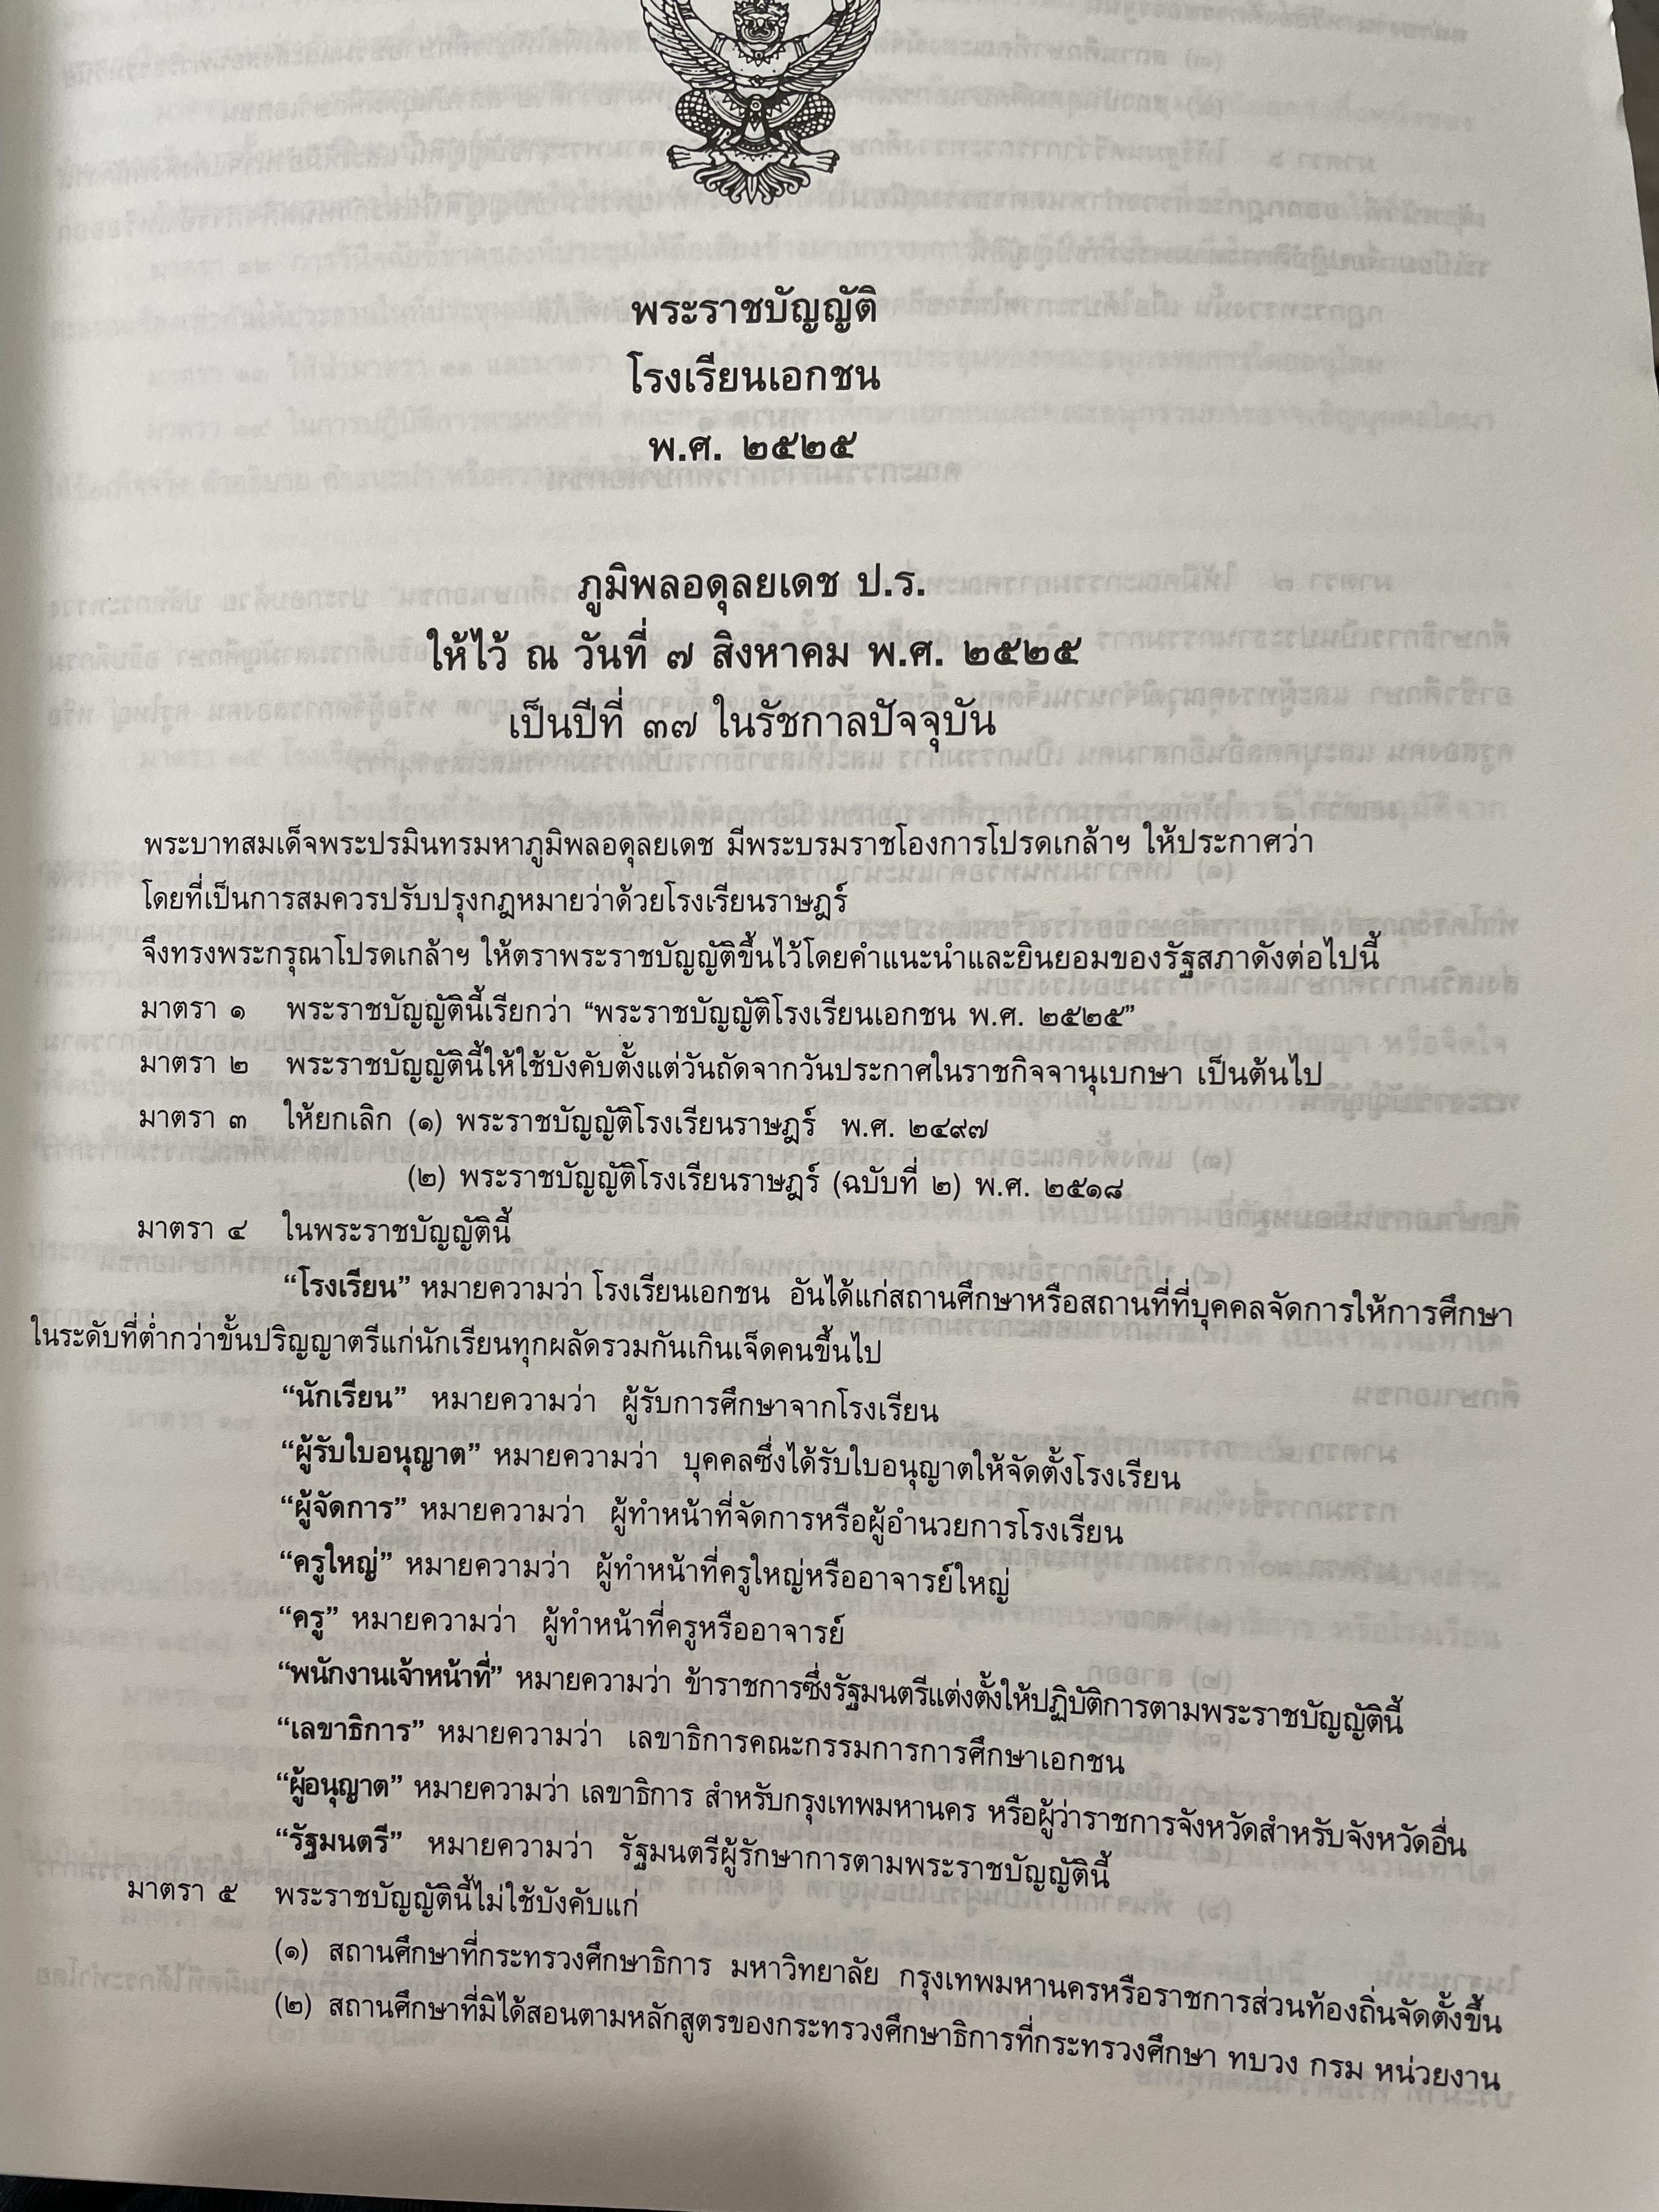 พระราชบัญญัติ
โรงเรียนเอกชน
พ.ศ. ๒๕๒๕
ภูมิพลอดุลยเดช ป.ร.
ให้ไว้ ณ วันที่ ๗ สิงหาคม พ.ศ. ๒๕๒๕
เป็นปีที่ ๓๗ ในรัชกาลปัจจุบัน
พระบาทสมเด็จพระปรมินทรมหาภูมิพลอดุลยเดช มีพระบรมราชโองการโปรดเกล้าฯ ให้ประกาศว่า
โดยที่เป็นการสมควรปรับปรุงกฎหมายว่าด้วยโรงเรียนราษฎร์
จึงทรงพระกรุณาโปรดเกล้าฯ ให้ตราพระราชบัญญัติขึ้นไว้โดยคำแนะนำและยินยอมของรัฐสภาดังต่อไปนี้
มาตรา ๑ พระราชบัญญัตินี้เรียกว่า “พระราชบัญญัติโรงเรียนเอกชน พ.ศ. ๒๕๒๕”
มาตรา ๒ พระราชบัญญัตินี้ให้ใช้บังคับตั้งแต่วันถัดจากวันประกาศในราชกิจจานุเบกษา เป็นต้นไป
มาตรา ๓ ให้ยกเลิก (๑) พระราชบัญญัติโรงเรียนราษฎร์ พ.ศ. ๒๔๙๗
(๒) พระราชบัญญัติโรงเรียนราษฎร์ (ฉบับที่ ๒) พ.ศ. ๒๕๑๘
มาตรา ๔ ในพระราชบัญญัตินี้
“โรงเรียน” หมายความว่า โรงเรียนเอกชน อันได้แก่สถานศึกษาหรือสถานที่ที่บุคคลจัดการให้การศึกษา
ในระดับที่ต่ำกว่าขั้นปริญญาตรีแก่นักเรียนทุกผลัดรวมกันเกินเจ็ดคนขึ้นไป
“นักเรียน” หมายความว่า ผู้รับการศึกษาจากโรงเรียน
“ผู้รับใบอนุญาต” หมายความว่า บุคคลซึ่งได้รับใบอนุญาตให้จัดตั้งโรงเรียน
“ผู้จัดการ” หมายความว่า ผู้ทำหน้าที่จัดการหรือผู้อำนวยการโรงเรียน
“ครูใหญ่” หมายความว่า ผู้ทำหน้าที่ครูใหญ่หรืออาจารย์ใหญ่
“ครู” หมายความว่า ผู้ทำหน้าที่ครูหรืออาจารย์
“พนักงานเจ้าหน้าที่” หมายความว่า ข้าราชการซึ่งรัฐมนตรีแต่งตั้งให้ปฏิบัติการตามพระราชบัญญัตินี้
“เลขาธิการ” หมายความว่า เลขาธิการคณะกรรมการการศึกษาเอกชน
“ผู้อนุญาต” หมายความว่า เลขาธิการ สำหรับกรุงเทพมหานคร หรือผู้ว่าราชการจังหวัดสำหรับจังหวัดอื่น
“รัฐมนตรี” หมายความว่า รัฐมนตรีผู้รักษาการตามพระราชบัญญัตินี้
มาตรา ๕ พระราชบัญญัตินี้ไม่ใช้บังคับแก่
(๑) สถานศึกษาที่กระทรวงศึกษาธิการ มหาวิทยาลัย กรุงเทพมหานครหรือราชการส่วนท้องถิ่นจัดตั้งขึ้น
(๒) สถานศึกษาที่มิได้สอนตามหลักสูตรของกระทรวงศึกษาธิการที่กระทรวงศึกษา ทบวง กรม หน่วยงาน